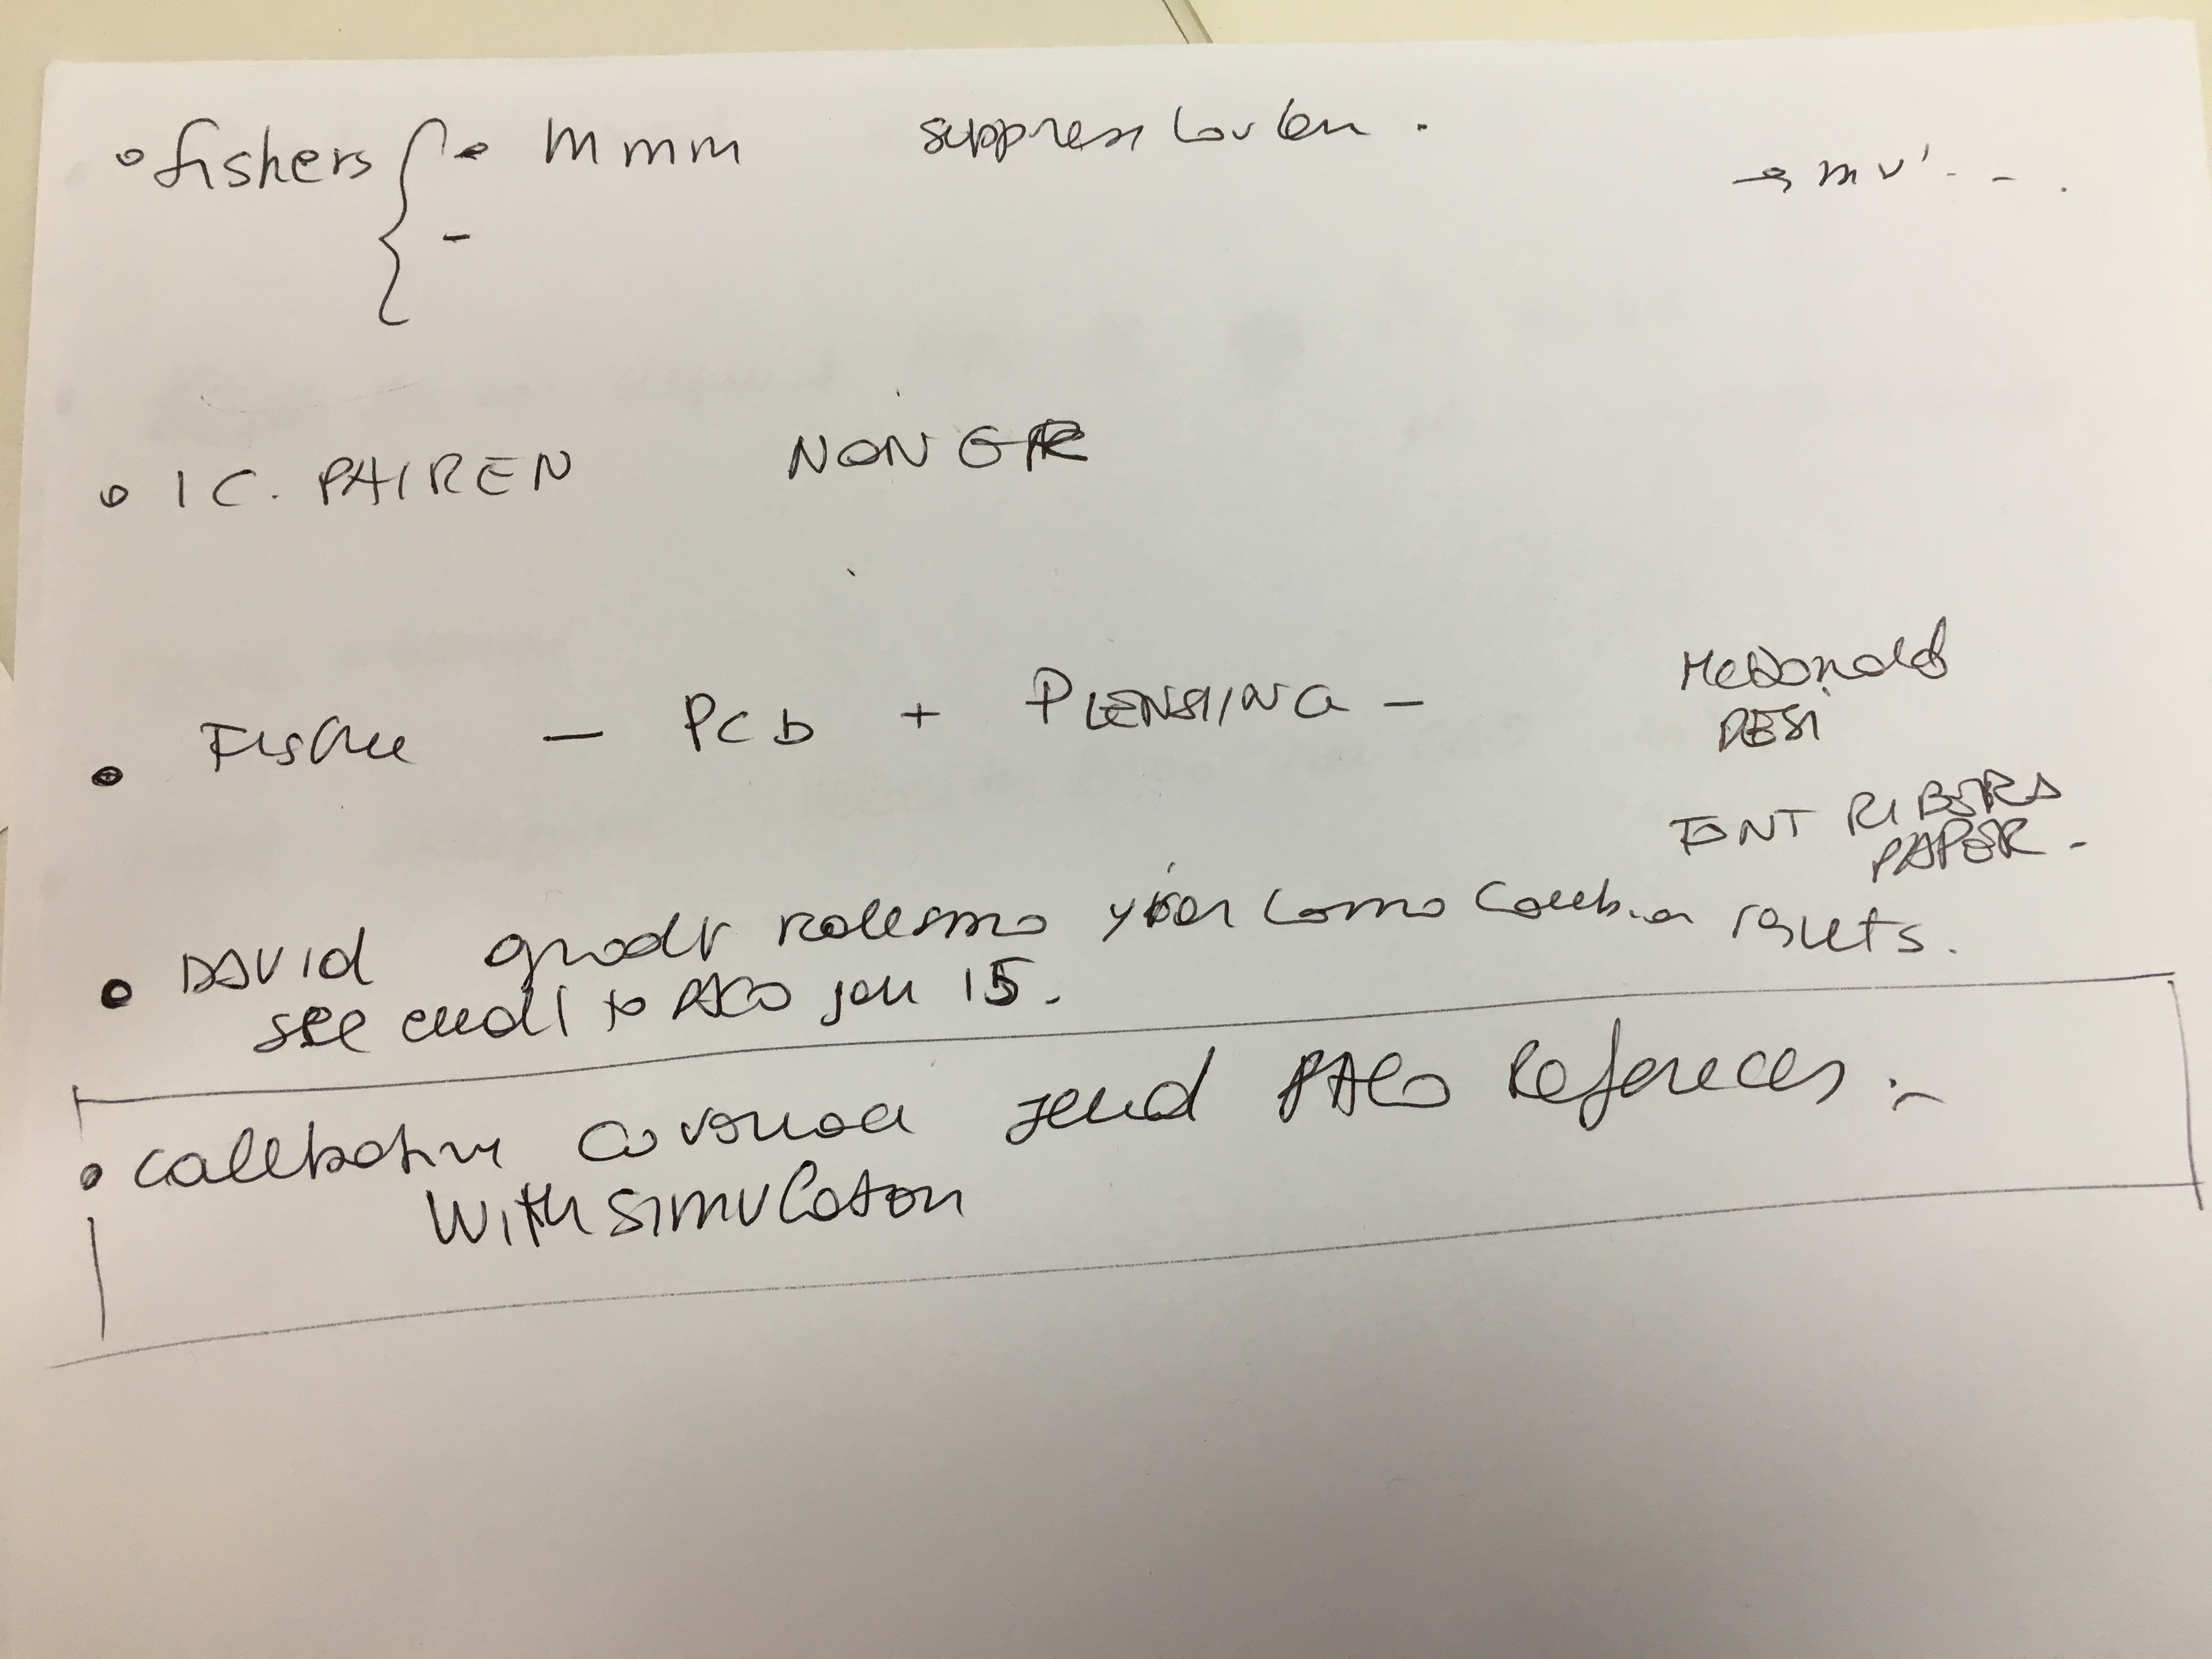 fishers { • mmm suppress → mv' - - .
-
• IC. PAIREN NON GR
• Fisher — PCb + PLENSING —
McDonald
DESI
FONT RIBERA
PAPER -
• DAVID como results.
see email to PACO jan 15.
• calibration send PACO Refereces :-
with simulation